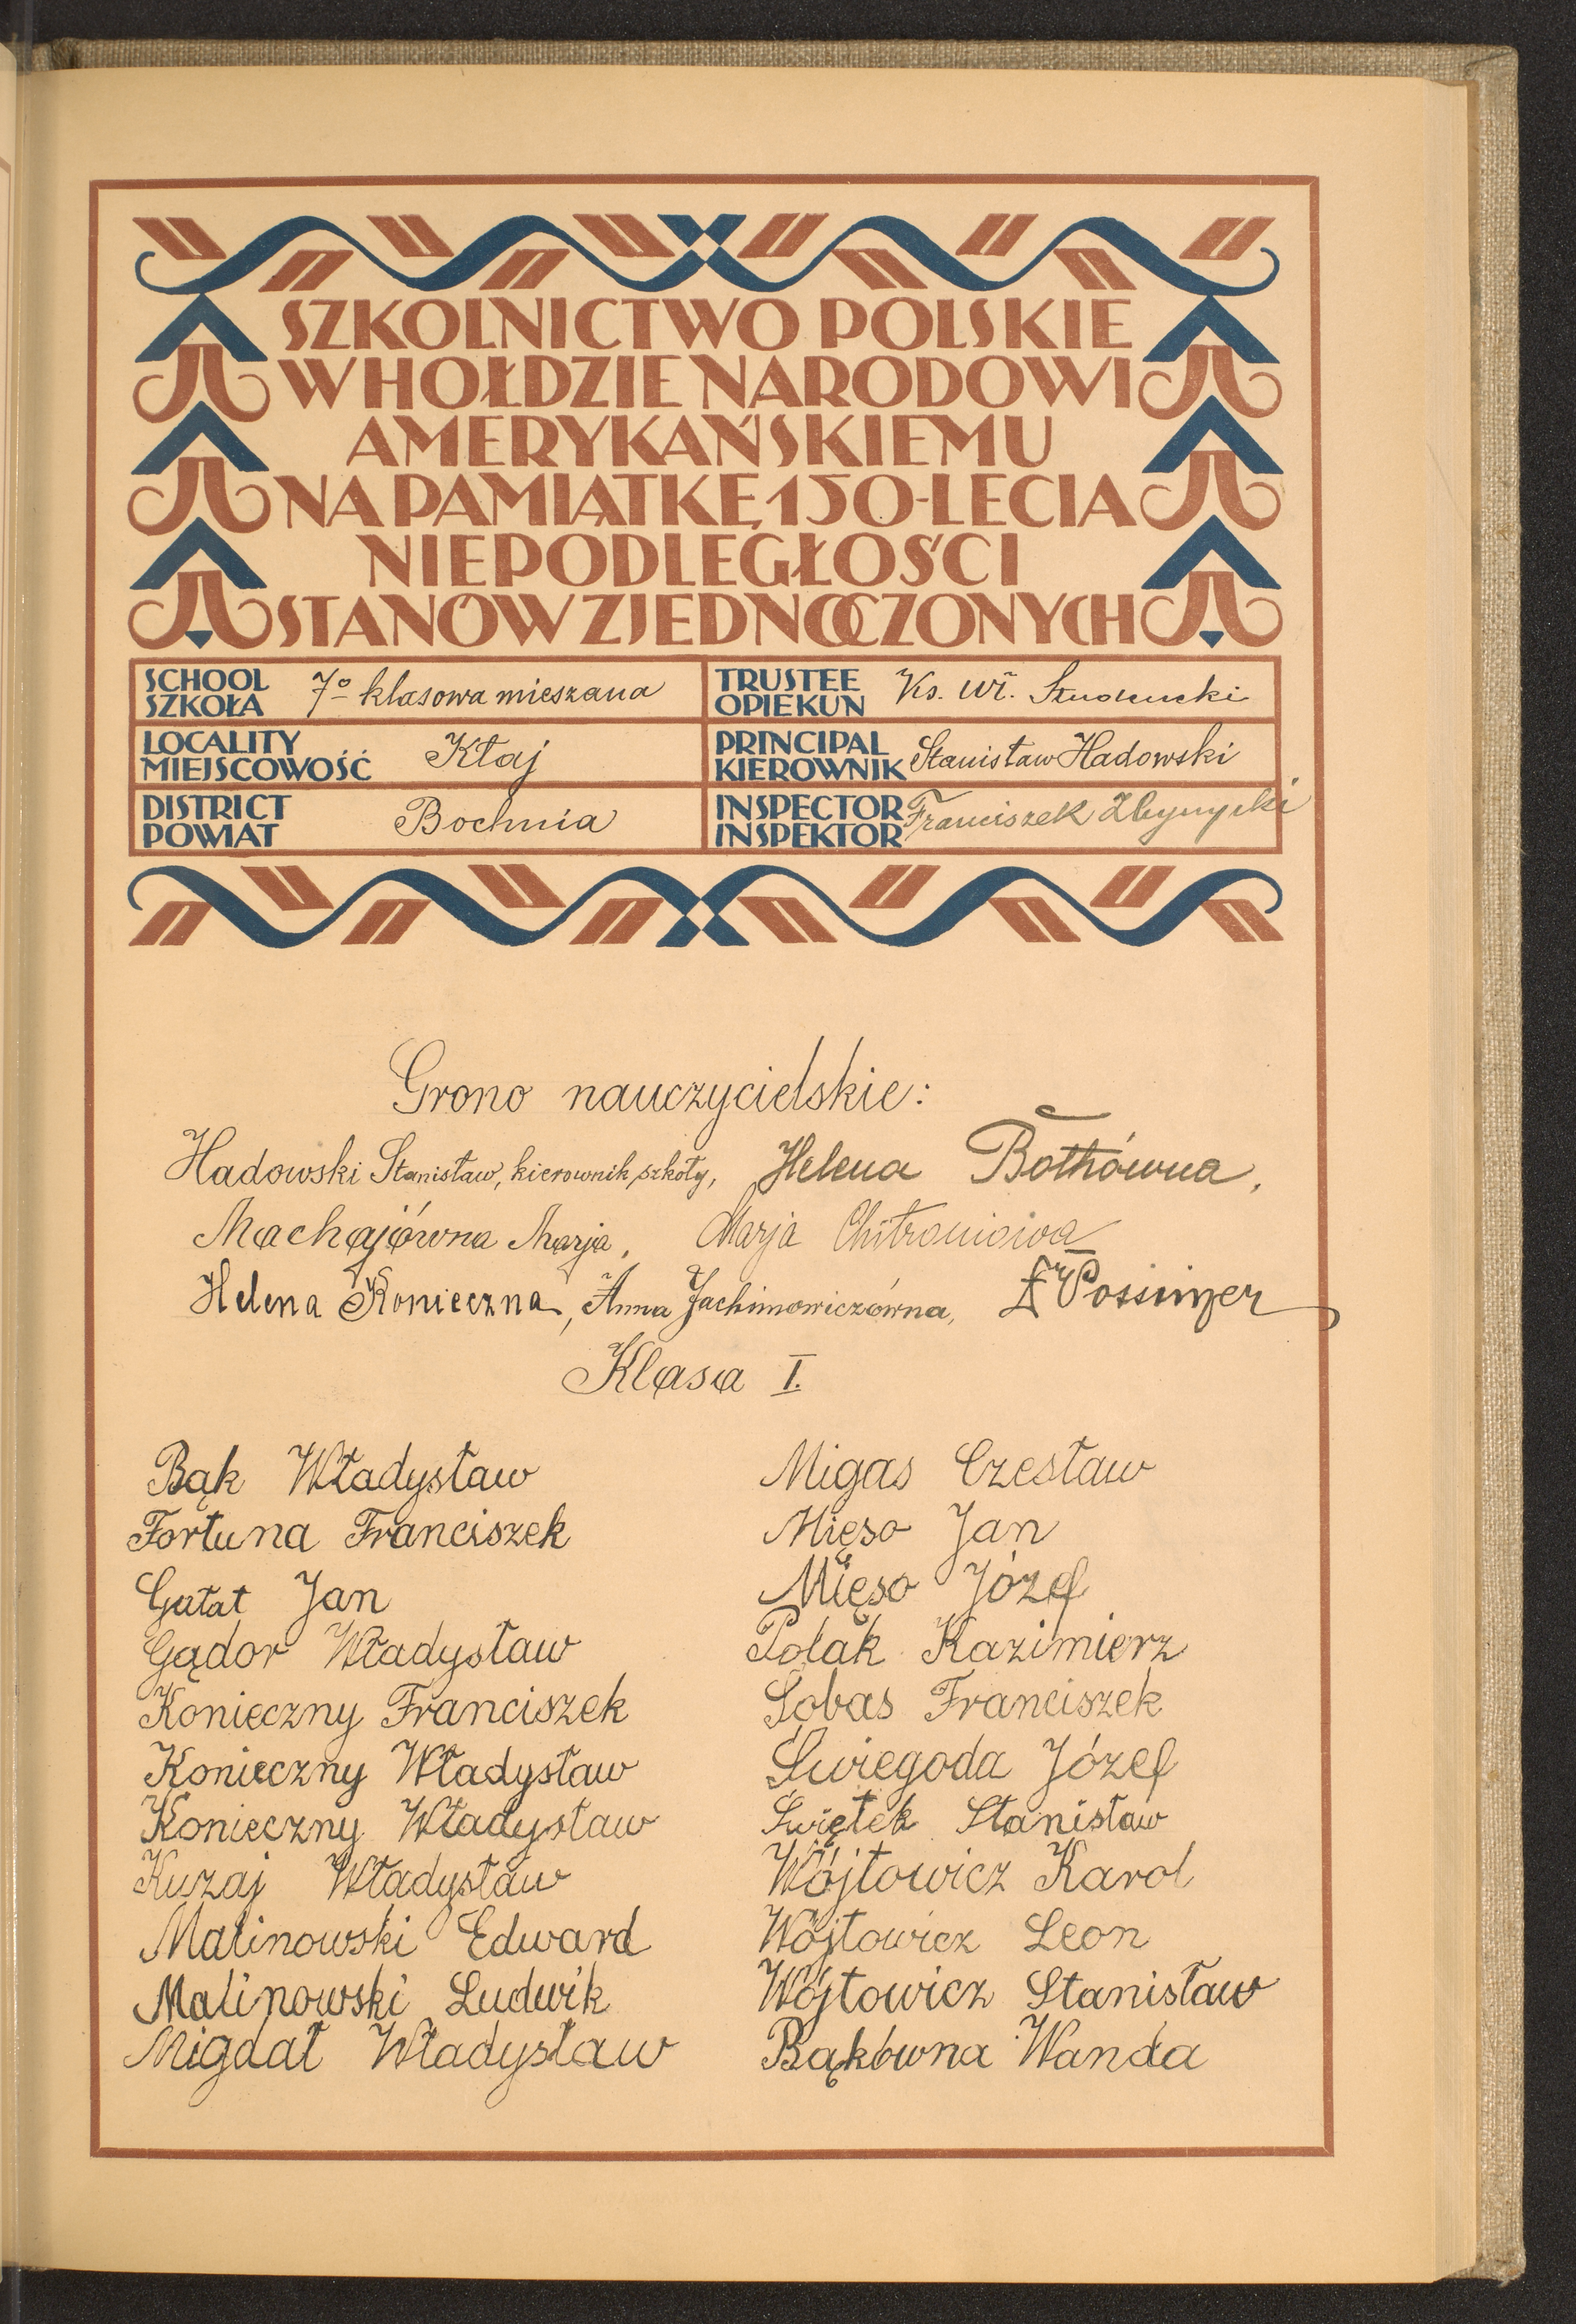 SZKOLNICTWO POLSKIE
W HOŁDZIE NARODOWI
AMERYKAŃSKIEMU
NA PAMIĄTKĘ 150-LECIA
NIEPODLEGŁOŚCI
STANÓW ZJEDNOCZONYCH
SCHOOL
SZKOŁA
7º klasowa mieszana
TRUSTEE
OPIEKUN
Ks. Wł.
LOCALITY
MIEJSCOWOŚĆ
Kłaj
PRINCIPAL
KIEROWNIK
Stanisław Hadowski
DISTRICT
POWIAT
Bochnia
INSPECTOR
INSPEKTOR
Franciszek
Grono nauczycielskie:
Hadowski Stanisław, kierownik szkoły, Helena Bothówna,
Machajówna Marja, Marja
Helena Konieczna, Anna Jachimowiczówna,
Klasa I.
Bąk Władysław
Fortuna Franciszek
Gałat Jan
Gądor Władysław
Konieczny Franciszek
Konieczny Władysław
Konieczny Władysław
Kuzaj Władysław
Malinowski Edward
Malinowski Ludwik
Migdał Władysław
Migas Czesław
Mięso Jan
Mięso Józef
Polak Kazimierz
Sobas Franciszek
Świegoda Józef
Świętek Stanisław
Wójtowicz Karol
Wójtowicz Leon
Wójtowicz Stanisław
Bąkówna Wanda